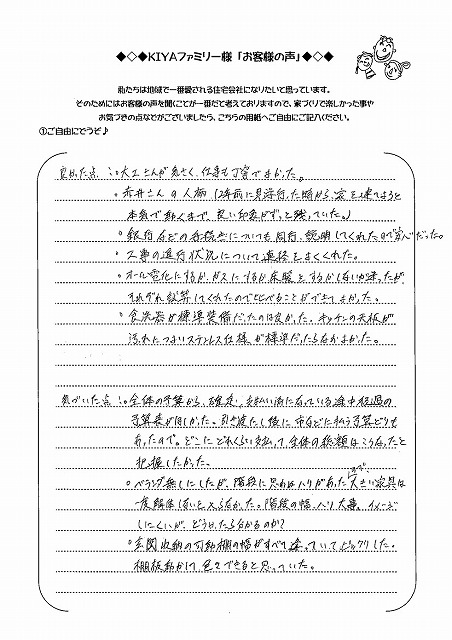 ◆◇◆KIYAファミリー様「お客様の声」◆◇◆
私たちは地域で一番愛される住宅会社になりたいと思っています。
そのためにはお客様の声を聞くことが一番だと考えておりますので、家づくりで楽しかった事や
お気づきの点などがございましたら、こちらの用紙へご自由にご記入ください。
①ご自由にどうぞ♪
良かった点 :。大工さんが気さく、仕事も丁寧でよかった。
。赤井さんの人柄(2年前に見学行った時から、家を建てようと
本気で動くまで、良い印象がずっと残っていた。)
。銀行などの手続きについても同行、説明してくれたので安心だった。
・工事の進行状況について連絡をよくくれた。
。オール電化にするか、ガスにするか床暖をするかしないか迷ったが、
それぞれ試算してくれたので比べることができてよかった。
。食洗器が標準装備だったのは良かった。キッチンの天板が
汚れにつよいステンレス仕様が標準だったらなおよかった。
気づいた点 :。全体の予算から、確定、支払い済になっている途中経過の
予算表がほしかった。引き渡した後に市などに払う予算どりも
あったので。どこにどれくらい支払って全体の総額はこうなったと
把握したかった。
。ベランダ無しにしたが、階段に思わぬハリがあったので、大きい家具は
一度解体しないと入らなかった。階段の幅、ハリ大事。イメージ
しにくいが、どうしたら分かるのか?
。玄関収納の可動棚の幅がすべて違っていてビックリした。
棚板動かして色々できると思っていた。